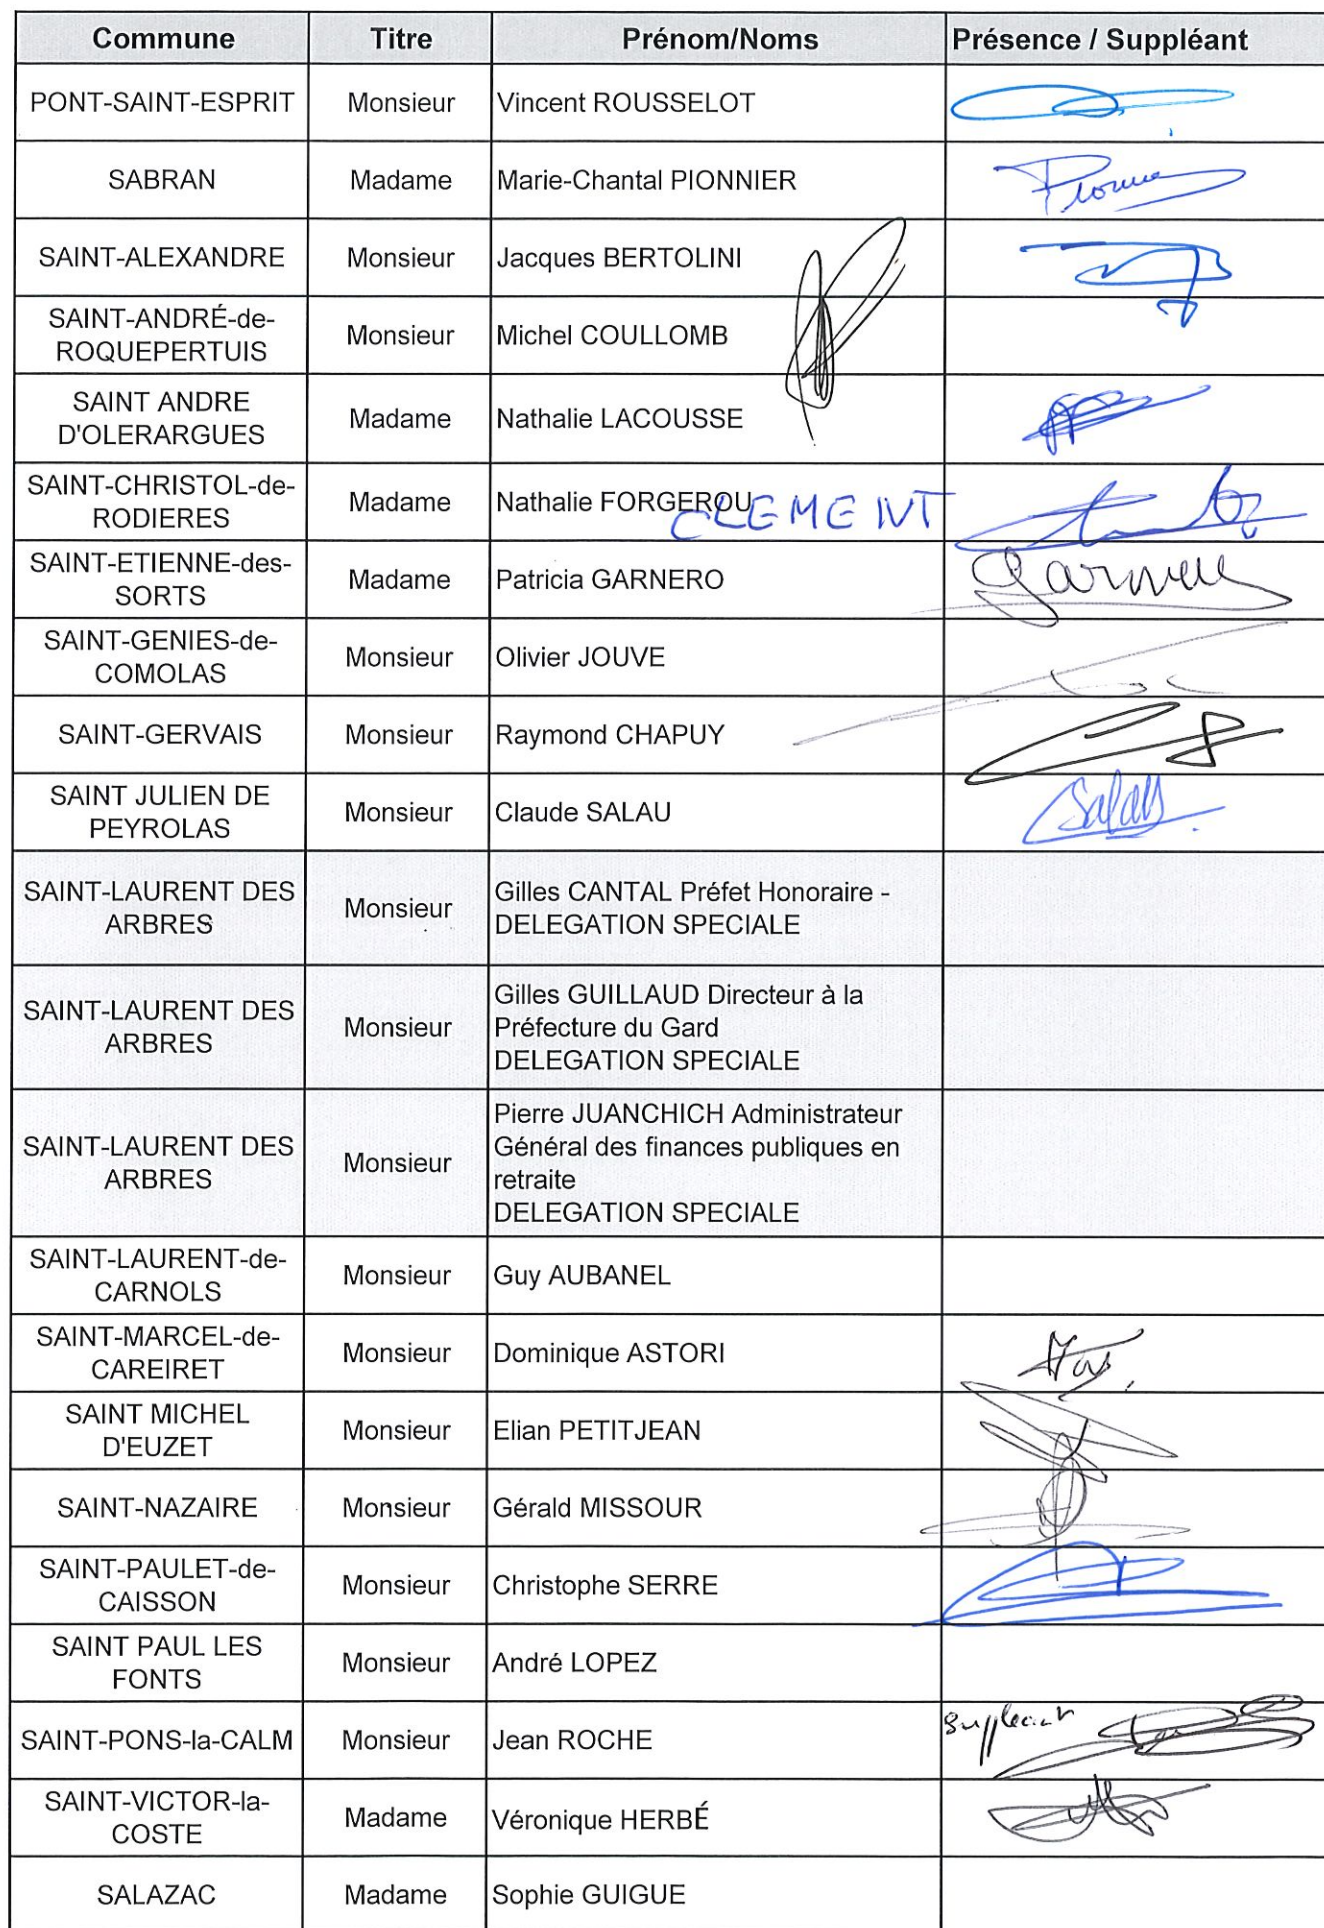 Commune Titre Prénom/Noms Présence / Suppléant
PONT-SAINT-ESPRIT Monsieur Vincent ROUSSELOT
SABRAN Madame Marie-Chantal PIONNIER
SAINT-ALEXANDRE Monsieur Jacques BERTOLINI
SAINT-ANDRÉ-de-
ROQUEPERTUIS Monsieur Michel COULLOMB
SAINT ANDRE
D'OLERARGUES Madame Nathalie LACOUSSE
SAINT-CHRISTOL-de-
RODIERES Madame Nathalie FORGEROU CLEMENT
SAINT-ETIENNE-des-
SORTS Madame Patricia GARNERO
SAINT-GENIES-de-
COMOLAS Monsieur Olivier JOUVE
SAINT-GERVAIS Monsieur Raymond CHAPUY
SAINT JULIEN DE
PEYROLAS Monsieur Claude SALAU
SAINT-LAURENT DES
ARBRES Monsieur Gilles CANTAL Préfet Honoraire -
DELEGATION SPECIALE
SAINT-LAURENT DES
ARBRES Monsieur Gilles GUILLAUD Directeur à la
Préfecture du Gard
DELEGATION SPECIALE
SAINT-LAURENT DES
ARBRES Monsieur Pierre JUANCHICH Administrateur
Général des finances publiques en
retraite
DELEGATION SPECIALE
SAINT-LAURENT-de-
CARNOLS Monsieur Guy AUBANEL
SAINT-MARCEL-de-
CAREIRET Monsieur Dominique ASTORI
SAINT MICHEL
D'EUZET Monsieur Elian PETITJEAN
SAINT-NAZAIRE Monsieur Gérald MISSOUR
SAINT-PAULET-de-
CAISSON Monsieur Christophe SERRE
SAINT PAUL LES
FONTS Monsieur André LOPEZ
SAINT-PONS-la-CALM Monsieur Jean ROCHE suppléant
SAINT-VICTOR-la-
COSTE Madame Véronique HERBÉ
SALAZAC Madame Sophie GUIGUE